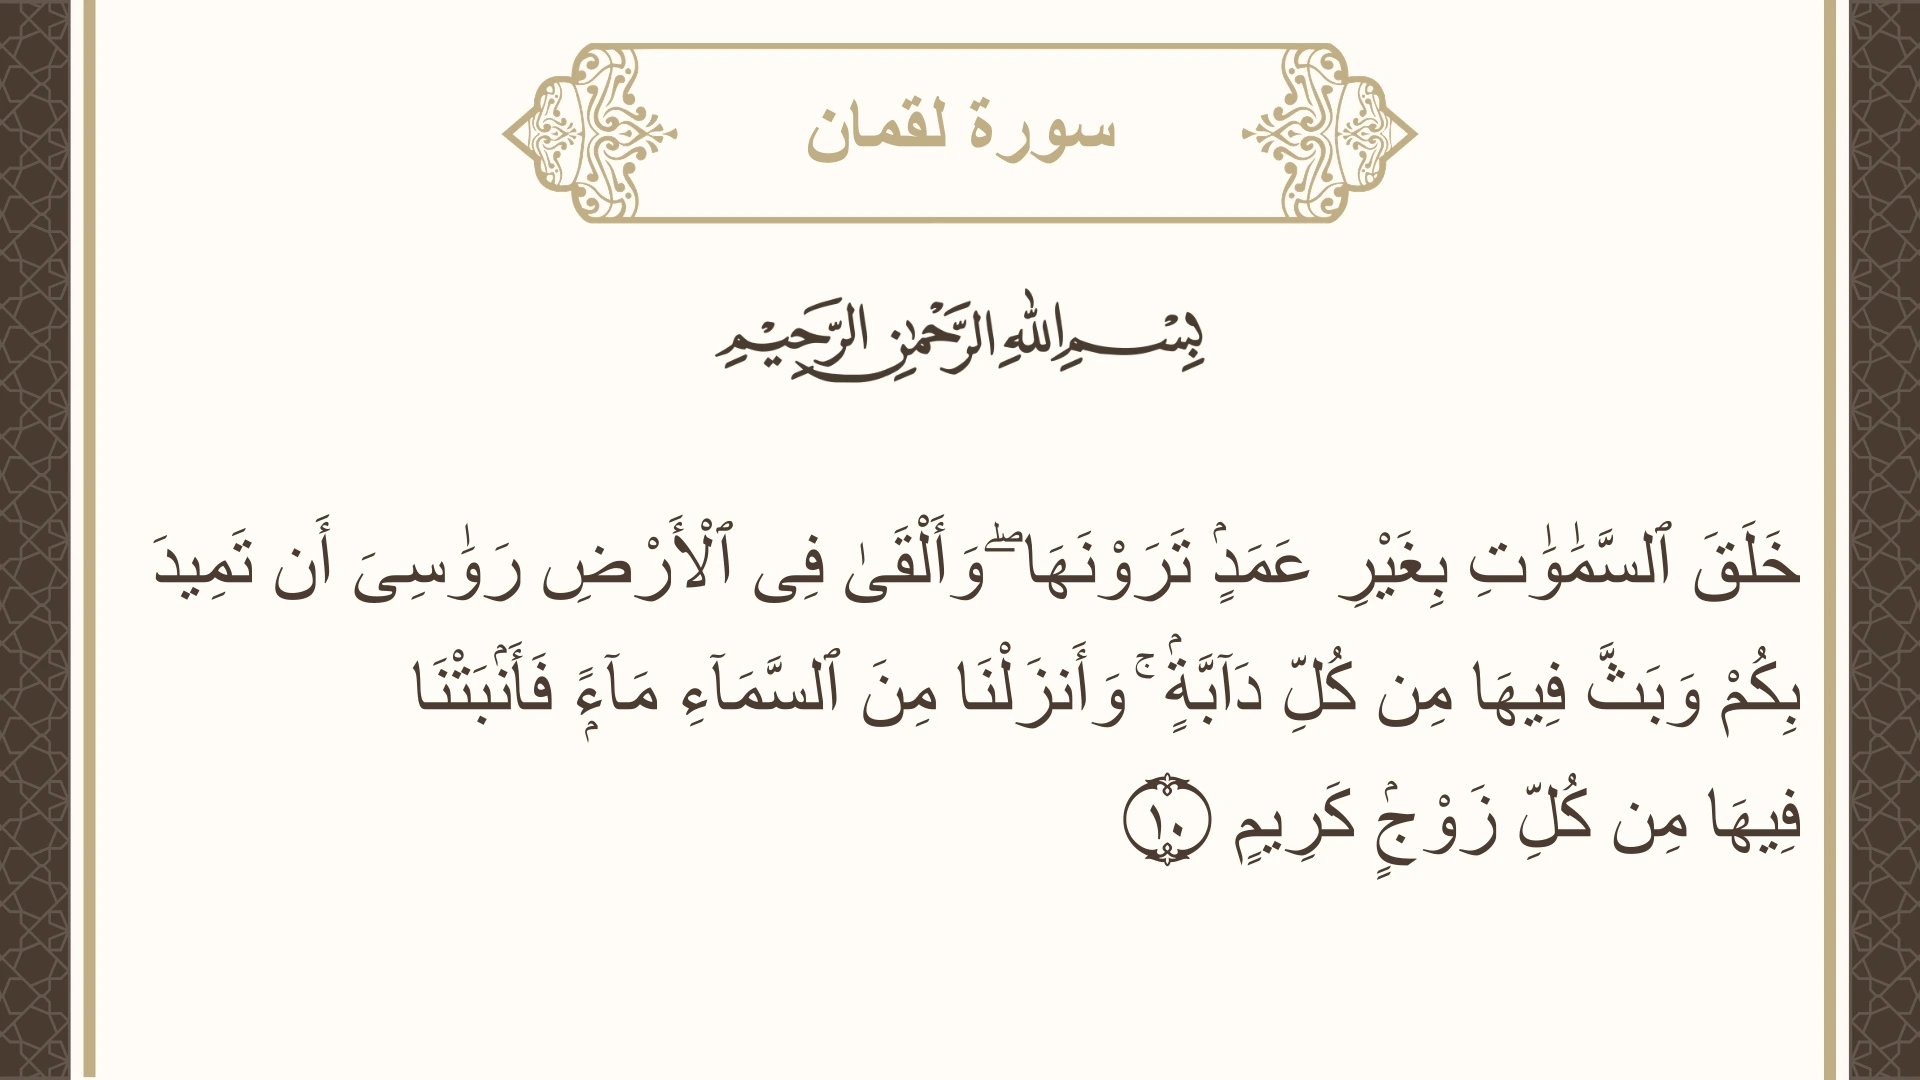 سورة لقمان
بِسْمِ اللهِ الرَّحْمٰنِ الرَّحِيْمِ
خَلَقَ ٱلسَّمَٰوَٰتِ بِغَيْرِ عَمَدٍۢ تَرَوْنَهَا ۖ وَأَلْقَىٰ فِى ٱلْأَرْضِ رَوَٰسِىَ أَن تَمِيدَ
بِكُمْ وَبَثَّ فِيهَا مِن كُلِّ دَآبَّةٍۢ ۚ وَأَنزَلْنَا مِنَ ٱلسَّمَآءِ مَآءًۭ فَأَنۢبَتْنَا
فِيهَا مِن كُلِّ زَوْجٍۢ كَرِيمٍ ١٠